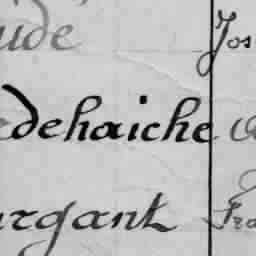 udé Jos
dehaiche
rgant Fra